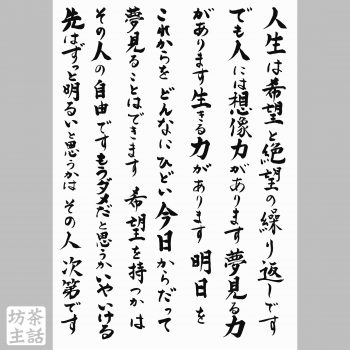 人生は希望と絶望の繰り返しです
でも人には想像力があります夢見る力
があります生きる力があります 明日を
これからを どんなにひどい今日からだって
夢見ることはできます 希望を持つかは
その人の自由ですもうダメだと思うかいやいける
先はずっと明るいと思うかは その人 次第です
茶話
坊主